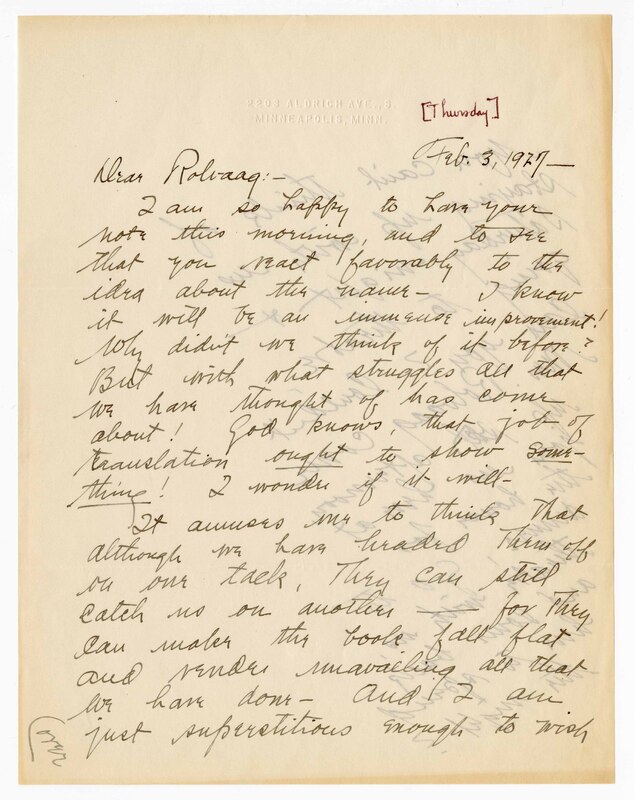 2203 ALDRICH AVE., S.
MINNEAPOLIS, MINN.
[Thursday]
Feb. 3, 1927—
Dear Rolvaag:-
I am so happy to have your
note this morning, and to see
that you react favorably to the
idea about the name— I know
it will be an immense improvement!
Why didn't we think of it before?
But with what struggles all that
we have thought of has come
about! God knows that job of
translation ought to show some-
thing! I wonder if it will-
It amuses me to think that
although we have headed them off
on one tack, they can still
catch us on another — for they
can make the book fall flat
and render unavailing all that
we have done— And I am
just superstitious enough to wish
(over